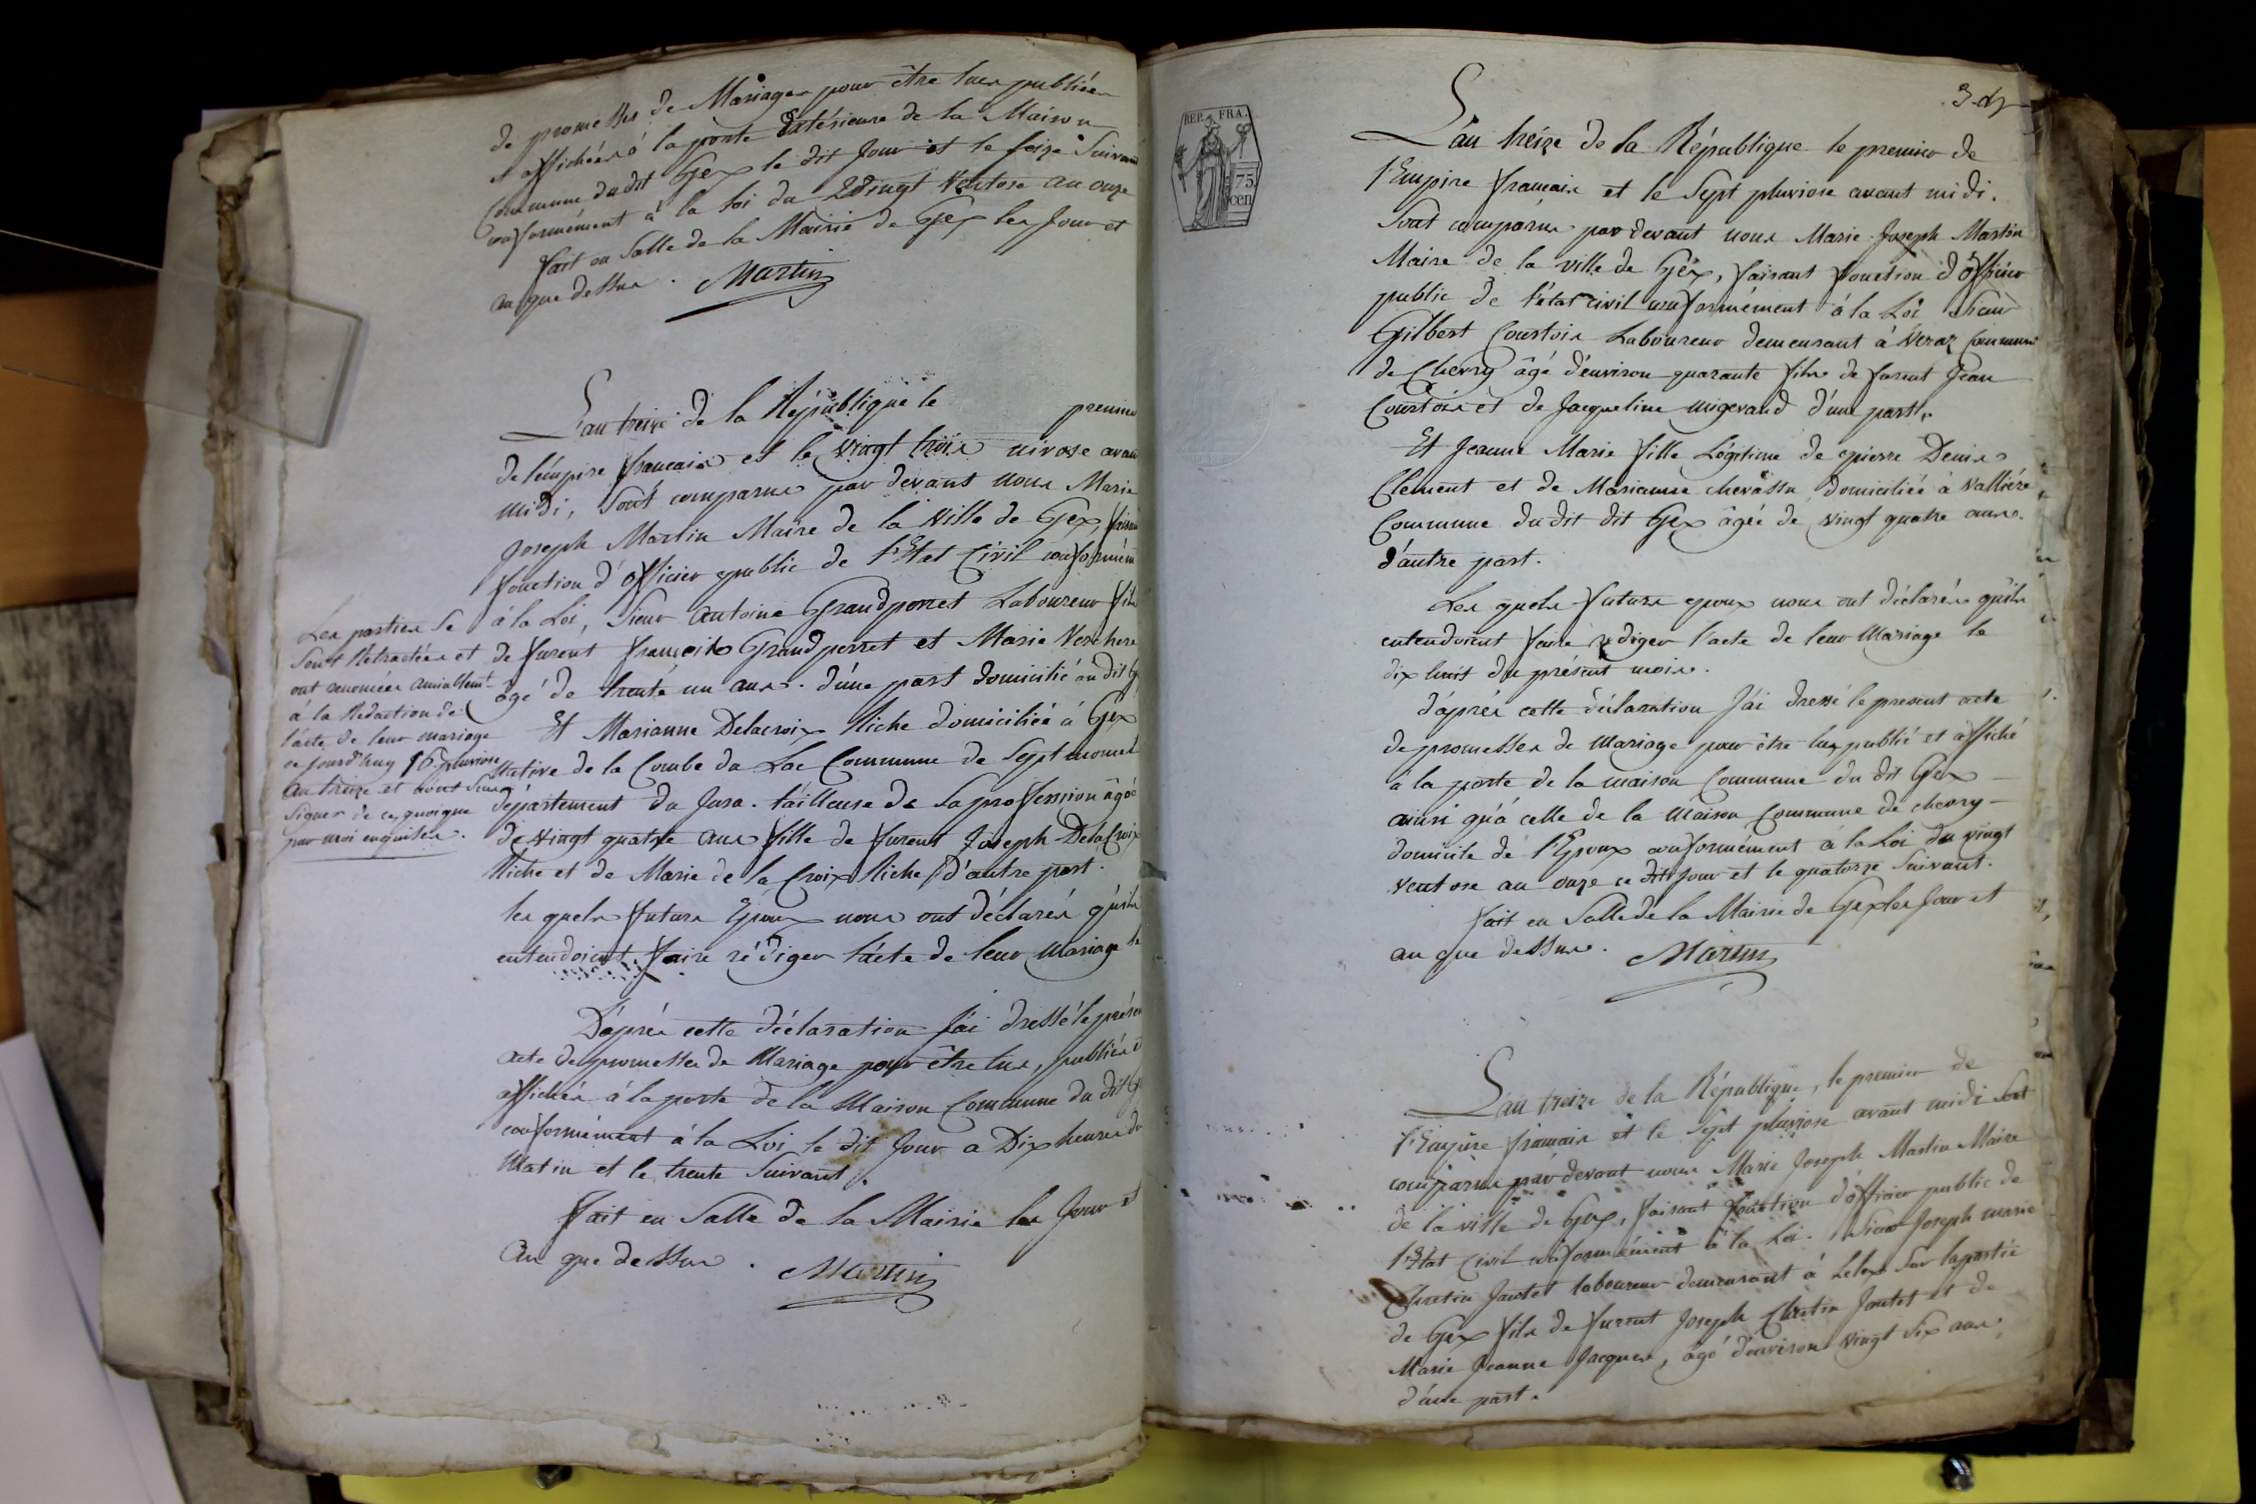 de promesses de Mariages pour être lues publiées
et affichées à la porte Extérieure de la Maison
Commune du dit Gex le dit Jour et le seize Suivant
conformément à la Loi du Vingt Ventose an onze
fait en Salle de la Mairie de Gex les Jour et
an que dessus. Martin
L'an treize de la République le premier
de l'empire francais et le vingt trois nivose avant
midi, Sont comparus par devant nous Marie
Joseph Martin Maire de la Ville de Gex, faisant
fonction d'officier public de l'Etat Civil conformément
à la Loi, Sieur antoine Grandperret Laboureur fils
de furent françois Grandperret et Marie Verchere
âgé de trente un ans. d'une part domicilié au dit Gex
Et Marianne Delacroix Riche domiciliée à Gex
Native de la Combe du Lac Commune de Septmoncel
département du Jura. tailleuse de sa profession âgée
de vingt quatre ans fille de furent Joseph DelaCroix
Riche et de Marie de la Croix Riche d'autre part.
les quels futurs Epoux nous ont déclarés qu'ils
entendoient faire rédiger l'acte de leur Mariage le
D'après cette déclaration J'ai dressé le présent
acte de promesses de Mariage pour être lus, publiés et
affichés à la porte de la Maison Commune du dit Gex
conformément à la Loi le dit Jour a Dix heures du
Matin et le trente Suivant.
fait en Salle de la Mairie les Jour et
An que dessus. Martin
Les parties se
sont Rétractées et
ont renoncées amiablemt
à la Rédaction de
l'acte de leur mariage
ce jourd'huy 16 pluviose
an treize et n'ont sçu
signer de ce quoique
par moi enquises.
REP. FRA.
75
cen
L'an treize de la République le premier de
l'Empire francais et le Sept pluviose avant midi.
Sont comparus par devant nous Marie Joseph Martin
Maire de la ville de Gex, faisant fonction d'officier
public de l'état civil conformément à la Loi Sieur
Gilbert Courtois Laboureur demeurant à Veraz Commune
de Chevry âgé d'environ quarante fils de furent Jean
Courtois et de Jacqueline migerand d'une part.
Et Jeanne Marie fille Légitime de pierre Denis
Clement et de Marianne chevassu domiciliée à Vallière
Commune du dit dit Gex âgée de vingt quatre ans.
d'autre part.
Les quels futurs epoux nous ont déclarés qu'ils
entendoient faire rediger l'acte de leur Mariage le
dix huit du présent mois.
d'après cette déclaration J'ai dressé le present acte
de promesses de Mariage pour être lus publié et affiché
à la porte de la maison Commune du dit Gex
ainsi qu'à celle de la Maison Commune de chevry
domicile de l'Epoux conformément à la Loi du vingt
ventose an onze ce dit Jour et le quatorze Suivant.
fait en Salle de la Mairie de Gex les Jour et
an que dessus. Martin
L'an treize de la République, le premier de
l'Empire francais et le Sept pluviose avant midi Sont
comparus par devant nous Marie Joseph Martin Maire
de la ville de Gex, faisant fonction d'officier public de
l'Etat Civil conformément à la Loi. Sieur Joseph marie
Chretin Jantet laboureur demeurant à Lelex Sur la partie
de Gex fils de furent Joseph Chretin Jantet et de
Marie Jeanne Jacques, âgé d'environ vingt six ans,
d'une part.